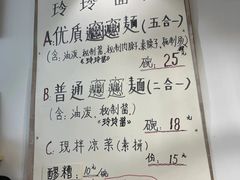 玲玲
A:优质𰻝𰻝麺(五合一)
(含:油泼、秘制酱、秘制肉臊子、素臊子、
《玲玲酱》
碗:25
B:普通𰻝𰻝麺(二合一)
(含:油泼、秘制酱)
《玲玲酱》
碗:18元
C:现拌凉菜(素拼)
份:15元
醪糟:10元/碗